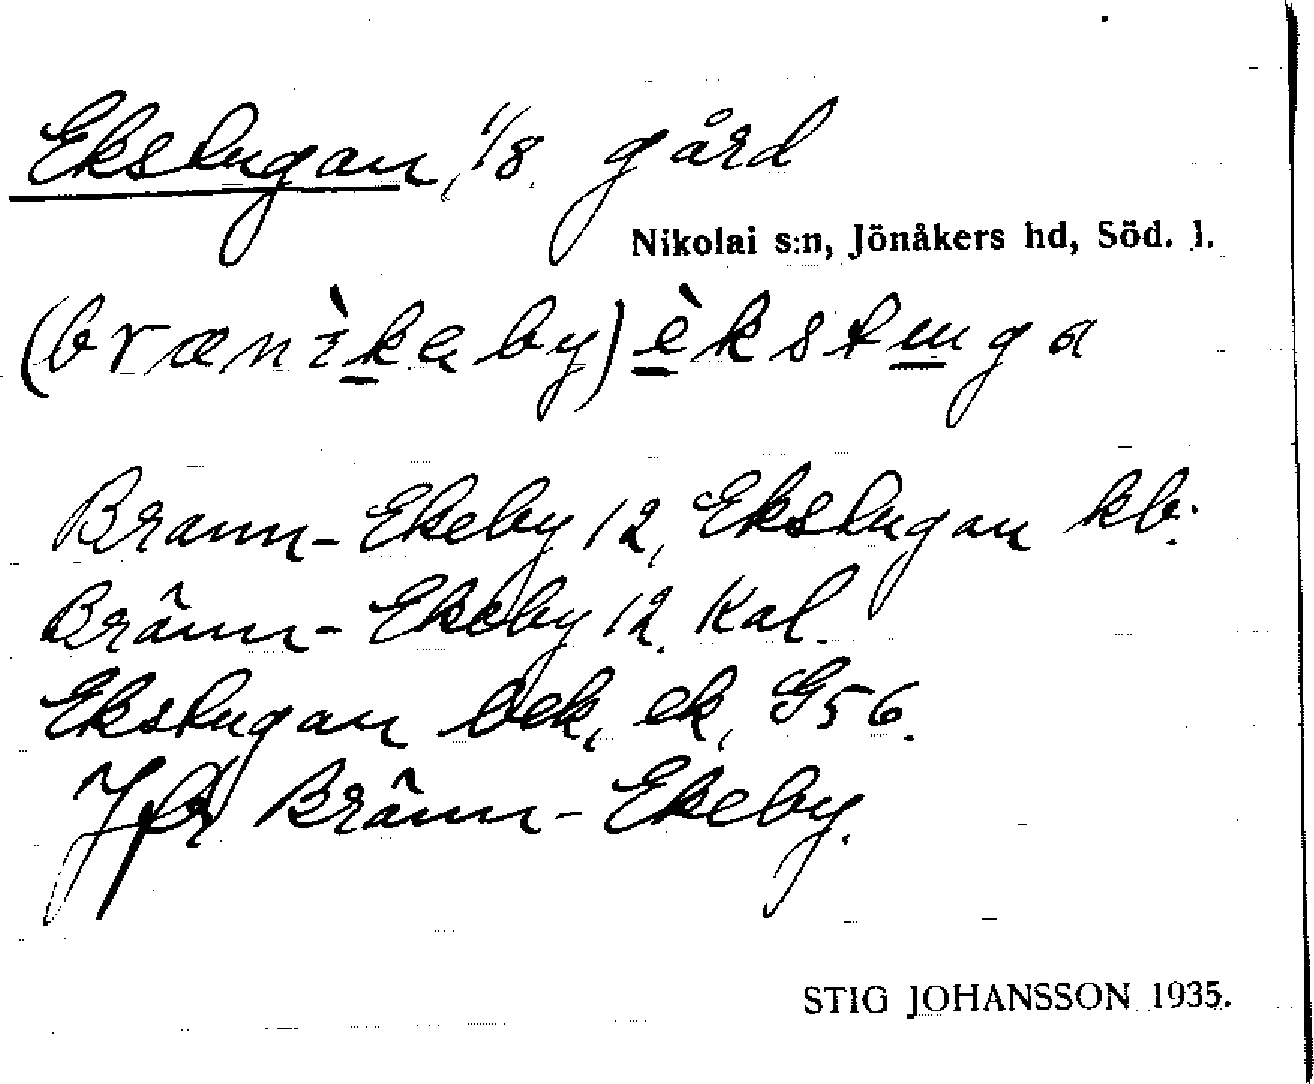 Ekstugan, 1/8 gård
Nikolai s:n, Jönåkers hd, Söd. l.
(brænìkeby) èkstuga
Brann-Ekeby 12, Ekstugan kb.
Bränn-Ekeby 12. Kal.
Ekstugan bek, ek, G56.
Jfr Bränn-Ekeby.
STIG JOHANSSON 1935.